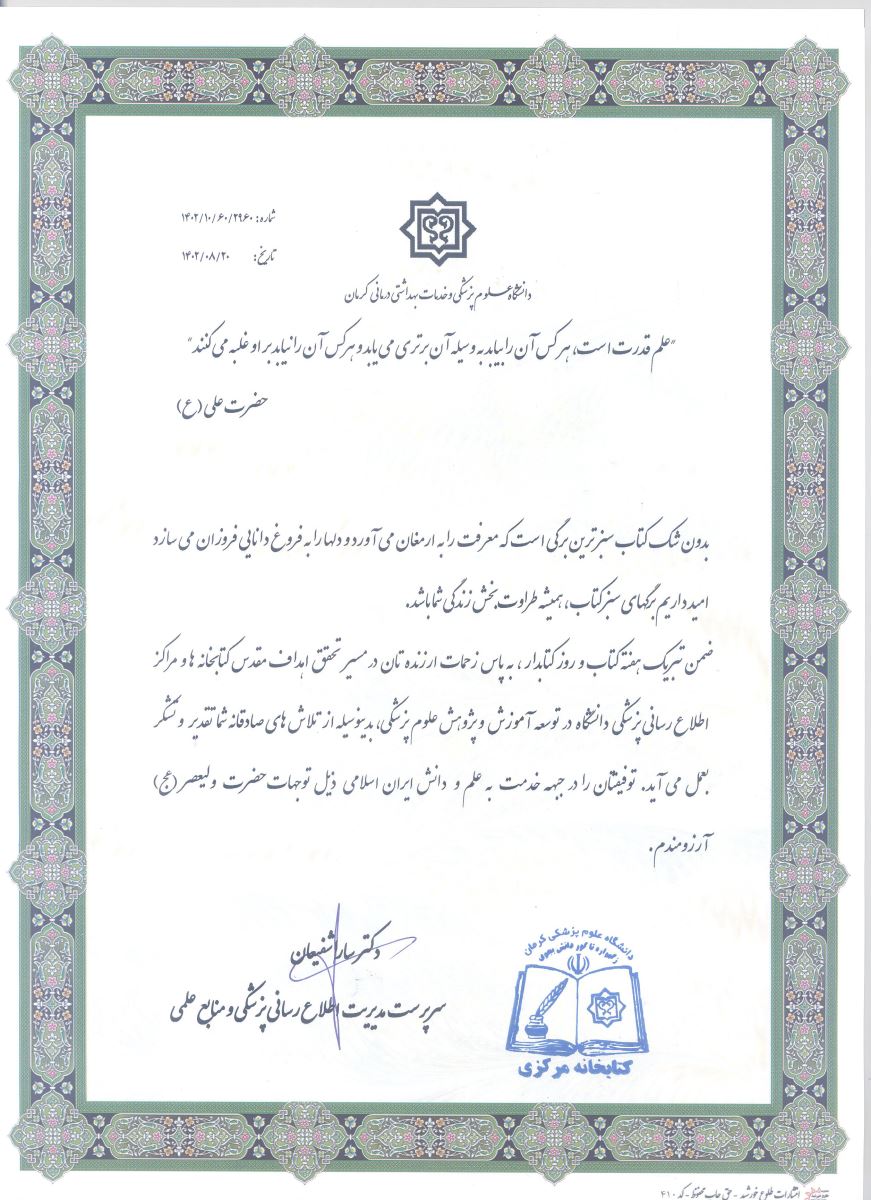 شماره: ۱۴۰۲/۱۰/۶۰/۲۹۶۰
تاریخ: ۱۴۰۲/۰۸/۲۰
دانشگاه علوم پزشکی و خدمات بهداشتی درمانی کرمان
"علم قدرت است، هر کس آن را بیابد به وسیله آن برتری می یابد و هر کس آن را نیابد بر او غلبه می کنند"
حضرت علی (ع)
بدون شک کتاب سبزترین برگی است که معرفت را به ارمغان می آورد و دلها را به فروغ دانایی فروزان می سازد
امید داریم برگهای سبز کتاب، همیشه طراوت بخش زندگی شما باشد.
ضمن تبریک هفته کتاب و روز کتابدار، به پاس زحمات ارزنده تان در مسیر تحقق اهداف مقدس کتابخانه ها و مراکز
اطلاع رسانی پزشکی دانشگاه در توسعه آموزش و پژوهش علوم پزشکی، بدینوسیله از تلاش های صادقانه شما تقدیر و تشکر
بعمل می آید. توفیقتان را در جبهه خدمت به علم و دانش ایران اسلامی ذیل توجهات حضرت ولیعصر (عج)
آرزومندم.
دکتر سارا شفیعیان
سرپرست مدیریت اطلاع رسانی پزشکی و منابع علمی
دانشگاه علوم پزشکی کرمان
ز گهواره تا گور دانش بجوی
کتابخانه مرکزی
انتشارات طلوع خورشید - حق چاپ محفوظ - کد ۴۱۰